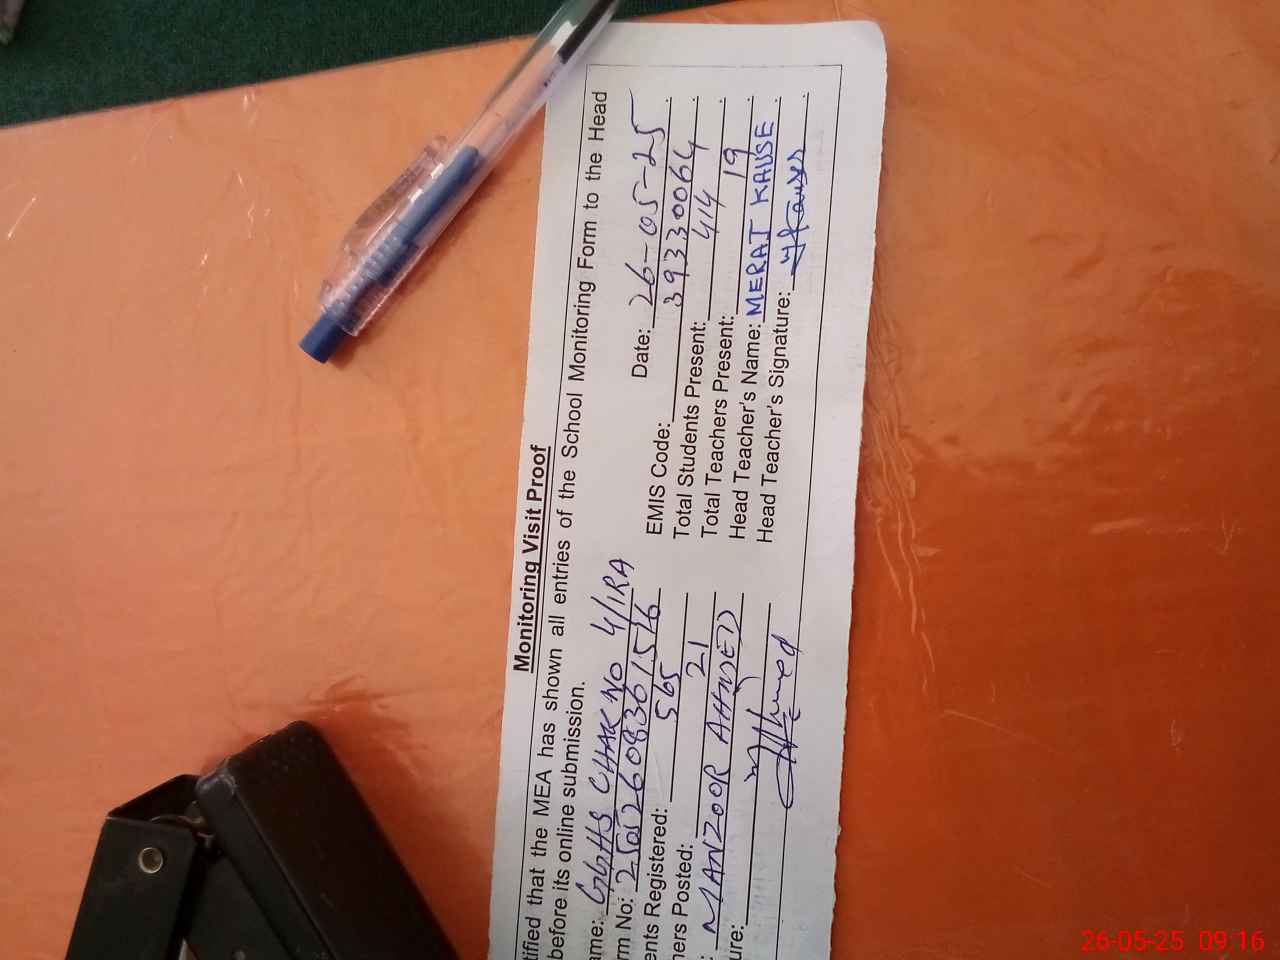 Monitoring Visit Proof
tified that the MEA has shown all entries of the School Monitoring Form to the Head
before its online submission.
ame: GGHS CHAK NO 4/1RA Date: 26-05-25
rm No: 25052608361516 EMIS Code: 39330064
ents Registered: 565 Total Students Present: 414
hers Posted: 21 Total Teachers Present: 19
: MANZOOR AHMED Head Teacher's Name: MERAJ KAUSE
ure: Ahmed Head Teacher's Signature: Mkauser
26-05-25 09:16